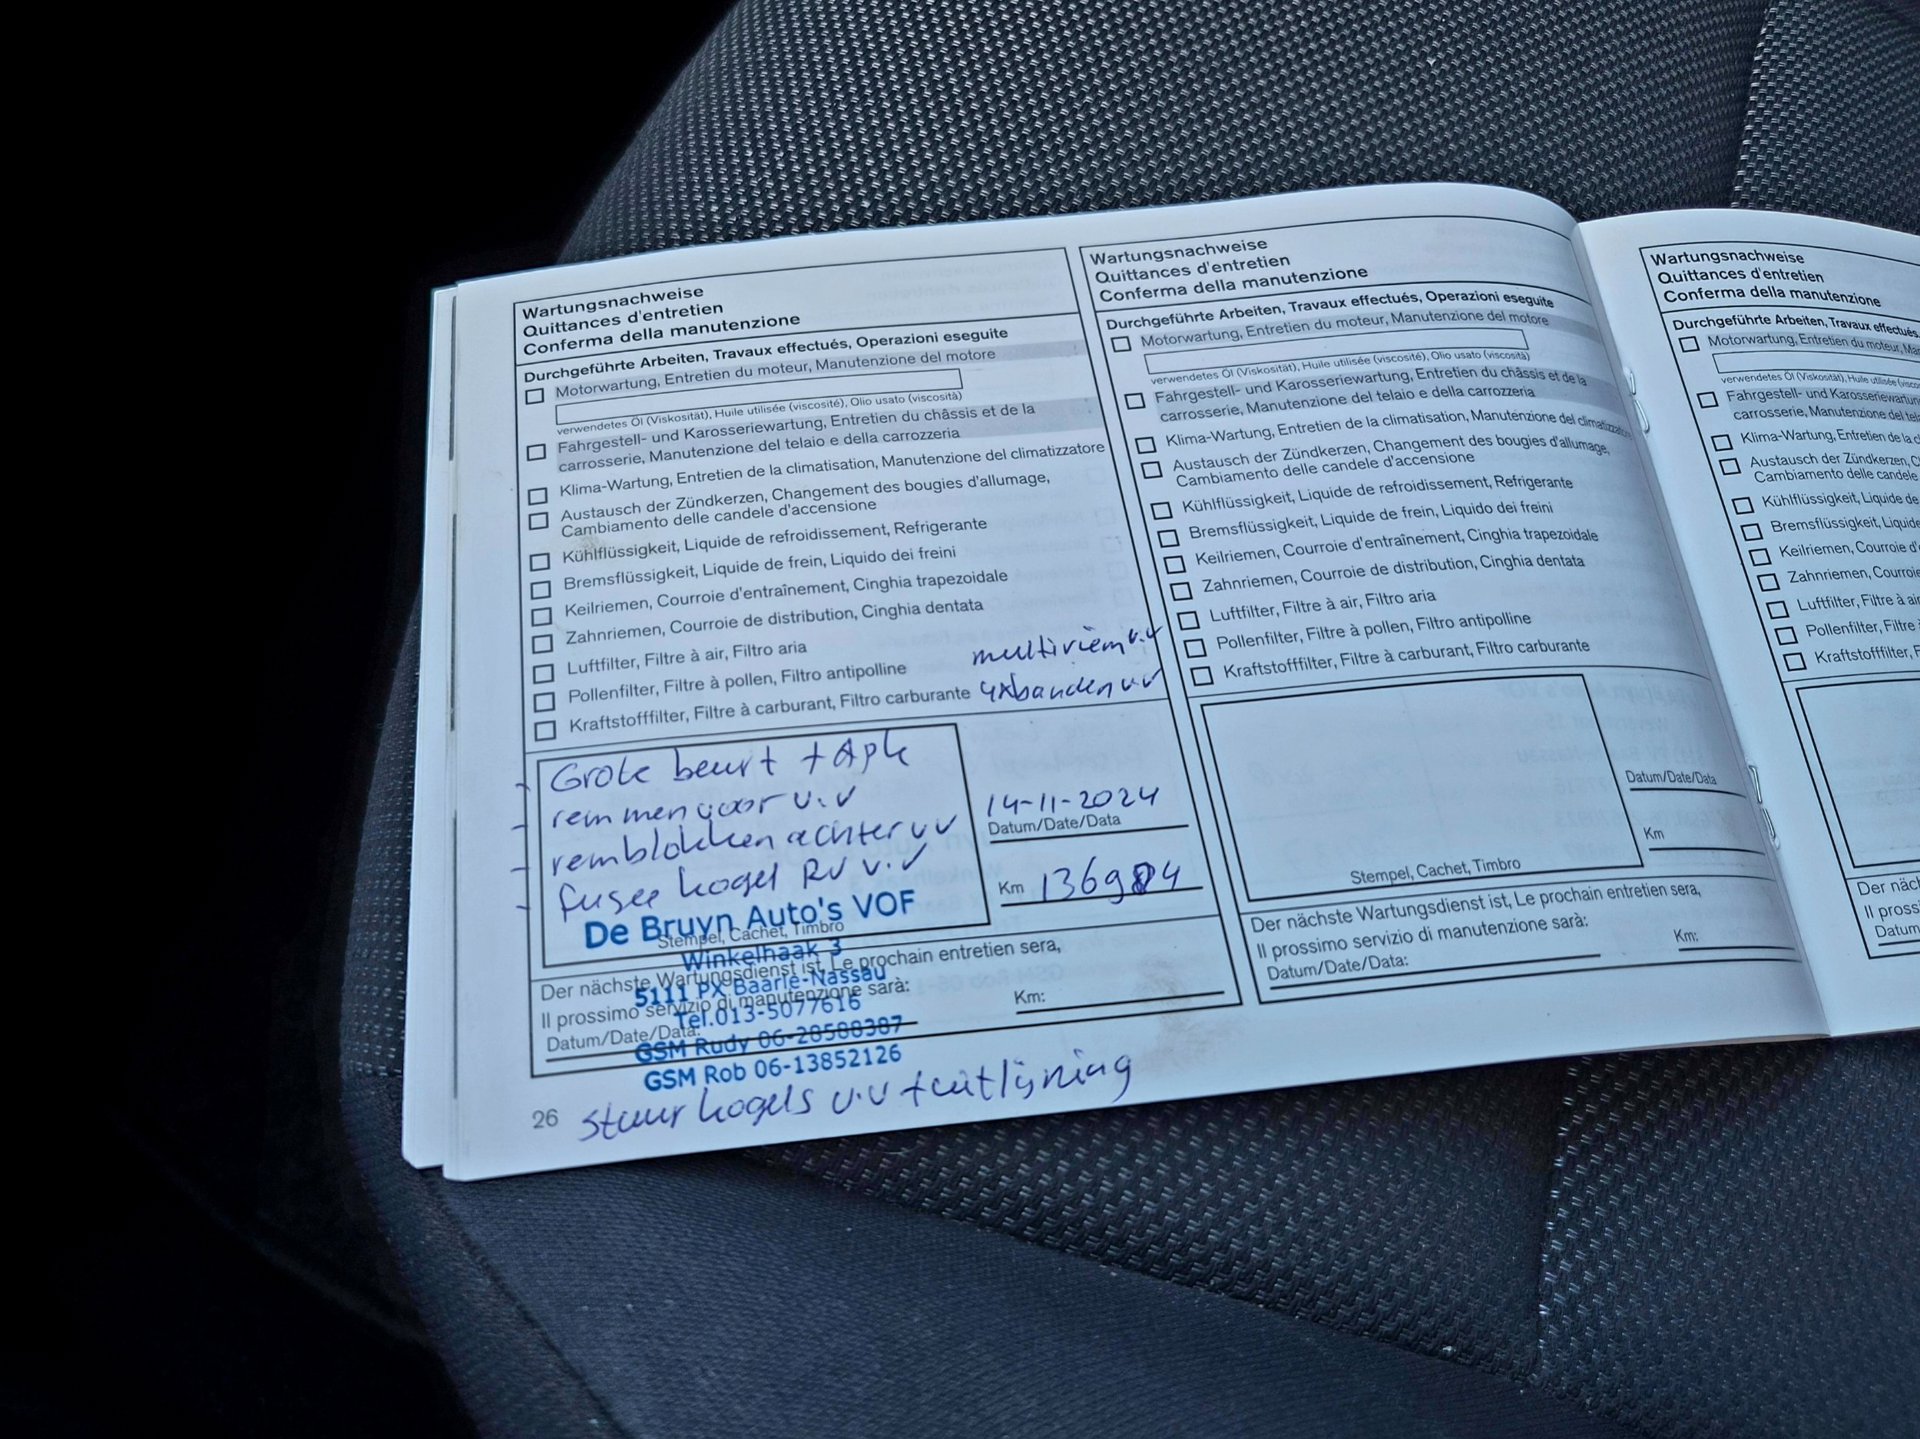 Wartungsnachweise
Quittances d'entretien
Conferma della manutenzione
Durchgeführte Arbeiten, Travaux effectués, Operazioni eseguite
Motorwartung, Entretien du moteur, Manutenzione del motore
verwendetes Öl (Viskosität), Huile utilisée (viscosité), Olio usato (viscosità)
Fahrgestell- und Karosseriewartung, Entretien du châssis et de la
carrosserie, Manutenzione del telaio e della carrozzeria
Klima-Wartung, Entretien de la climatisation, Manutenzione del climatizzatore
Austausch der Zündkerzen, Changement des bougies d'allumage,
Cambiamento delle candele d'accensione
Kühlflüssigkeit, Liquide de refroidissement, Refrigerante
Bremsflüssigkeit, Liquide de frein, Liquido dei freini
Keilriemen, Courroie d'entraînement, Cinghia trapezoidale
Zahnriemen, Courroie de distribution, Cinghia dentata
Luftfilter, Filtre à air, Filtro aria
Pollenfilter, Filtre à pollen, Filtro antipolline
Kraftstofffilter, Filtre à carburant, Filtro carburante
multiriem v.v
4x banden v.v
- Grote beurt + Apk
- remmen voor v.v
- remblokken achter v.v
- fusee kogel RV v.v
De Bruyn Auto's VOF
Stempel, Cachet, Timbro
Winkelhaak 3
5111 PX Baarle-Nassau
Tel.013-5077616
GSM Rudy 06-28588387
GSM Rob 06-13852126
14-11-2024
Datum/Date/Data
Km 136984
Der nächste Wartungsdienst ist, Le prochain entretien sera,
Il prossimo servizio di manutenzione sarà:
Datum/Date/Data:
Km:
26
stuur kogels v.v + uitlijning
Wartungsnachweise
Quittances d'entretien
Conferma della manutenzione
Durchgeführte Arbeiten, Travaux effectués, Operazioni eseguite
Motorwartung, Entretien du moteur, Manutenzione del motore
verwendetes Öl (Viskosität), Huile utilisée (viscosité), Olio usato (viscosità)
Fahrgestell- und Karosseriewartung, Entretien du châssis et de la
carrosserie, Manutenzione del telaio e della carrozzeria
Klima-Wartung, Entretien de la climatisation, Manutenzione del climatizzatore
Austausch der Zündkerzen, Changement des bougies d'allumage,
Cambiamento delle candele d'accensione
Kühlflüssigkeit, Liquide de refroidissement, Refrigerante
Bremsflüssigkeit, Liquide de frein, Liquido dei freini
Keilriemen, Courroie d'entraînement, Cinghia trapezoidale
Zahnriemen, Courroie de distribution, Cinghia dentata
Luftfilter, Filtre à air, Filtro aria
Pollenfilter, Filtre à pollen, Filtro antipolline
Kraftstofffilter, Filtre à carburant, Filtro carburante
Stempel, Cachet, Timbro
Datum/Date/Data
Km
Der nächste Wartungsdienst ist, Le prochain entretien sera,
Il prossimo servizio di manutenzione sarà:
Datum/Date/Data:
Km:
Wartungsnachweise
Quittances d'entretien
Conferma della manutenzione
Durchgeführte Arbeiten, Travaux effectués
Motorwartung, Entretien du moteur,
verwendetes Öl (Viskosität), Huile utilisée
Fahrgestell- und Karosseriewartung
carrosserie, Manutenzione del
Klima-Wartung, Entretien de la
Austausch der Zündkerzen,
Cambiamento delle candele
Kühlflüssigkeit, Liquide de
Bremsflüssigkeit, Liquide
Keilriemen, Courroie
Zahnriemen, Courroie
Luftfilter, Filtre à air
Pollenfilter, Filtre
Kraftstofffilter,
Il
Datum